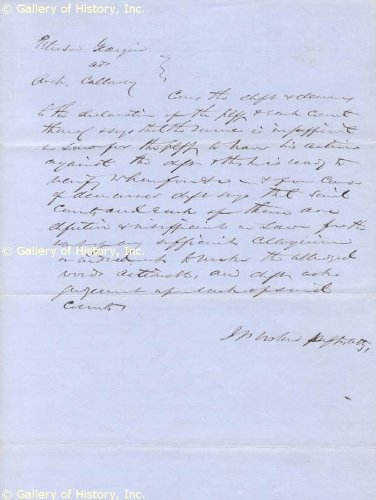 © Gallery of History, Inc.
ads
Arch. Callaway
Comes the deft & demurs
to the declaration of the plff & each Count
thereof & says that the same is insufficient
in Law for the plff to have his action
against the deft & this he is ready to
verify Wherefore & c & for Cause
of demurrer deft says that said
Counts and Each of them are
defective & insufficient in Law for the
sufficient Colloquium
to make the alledged
words actionable, and deft asks
judgment upon each of said
Counts
© Gallery of History, Inc.
© Gallery of History, Inc.
© Gallery of History, Inc.